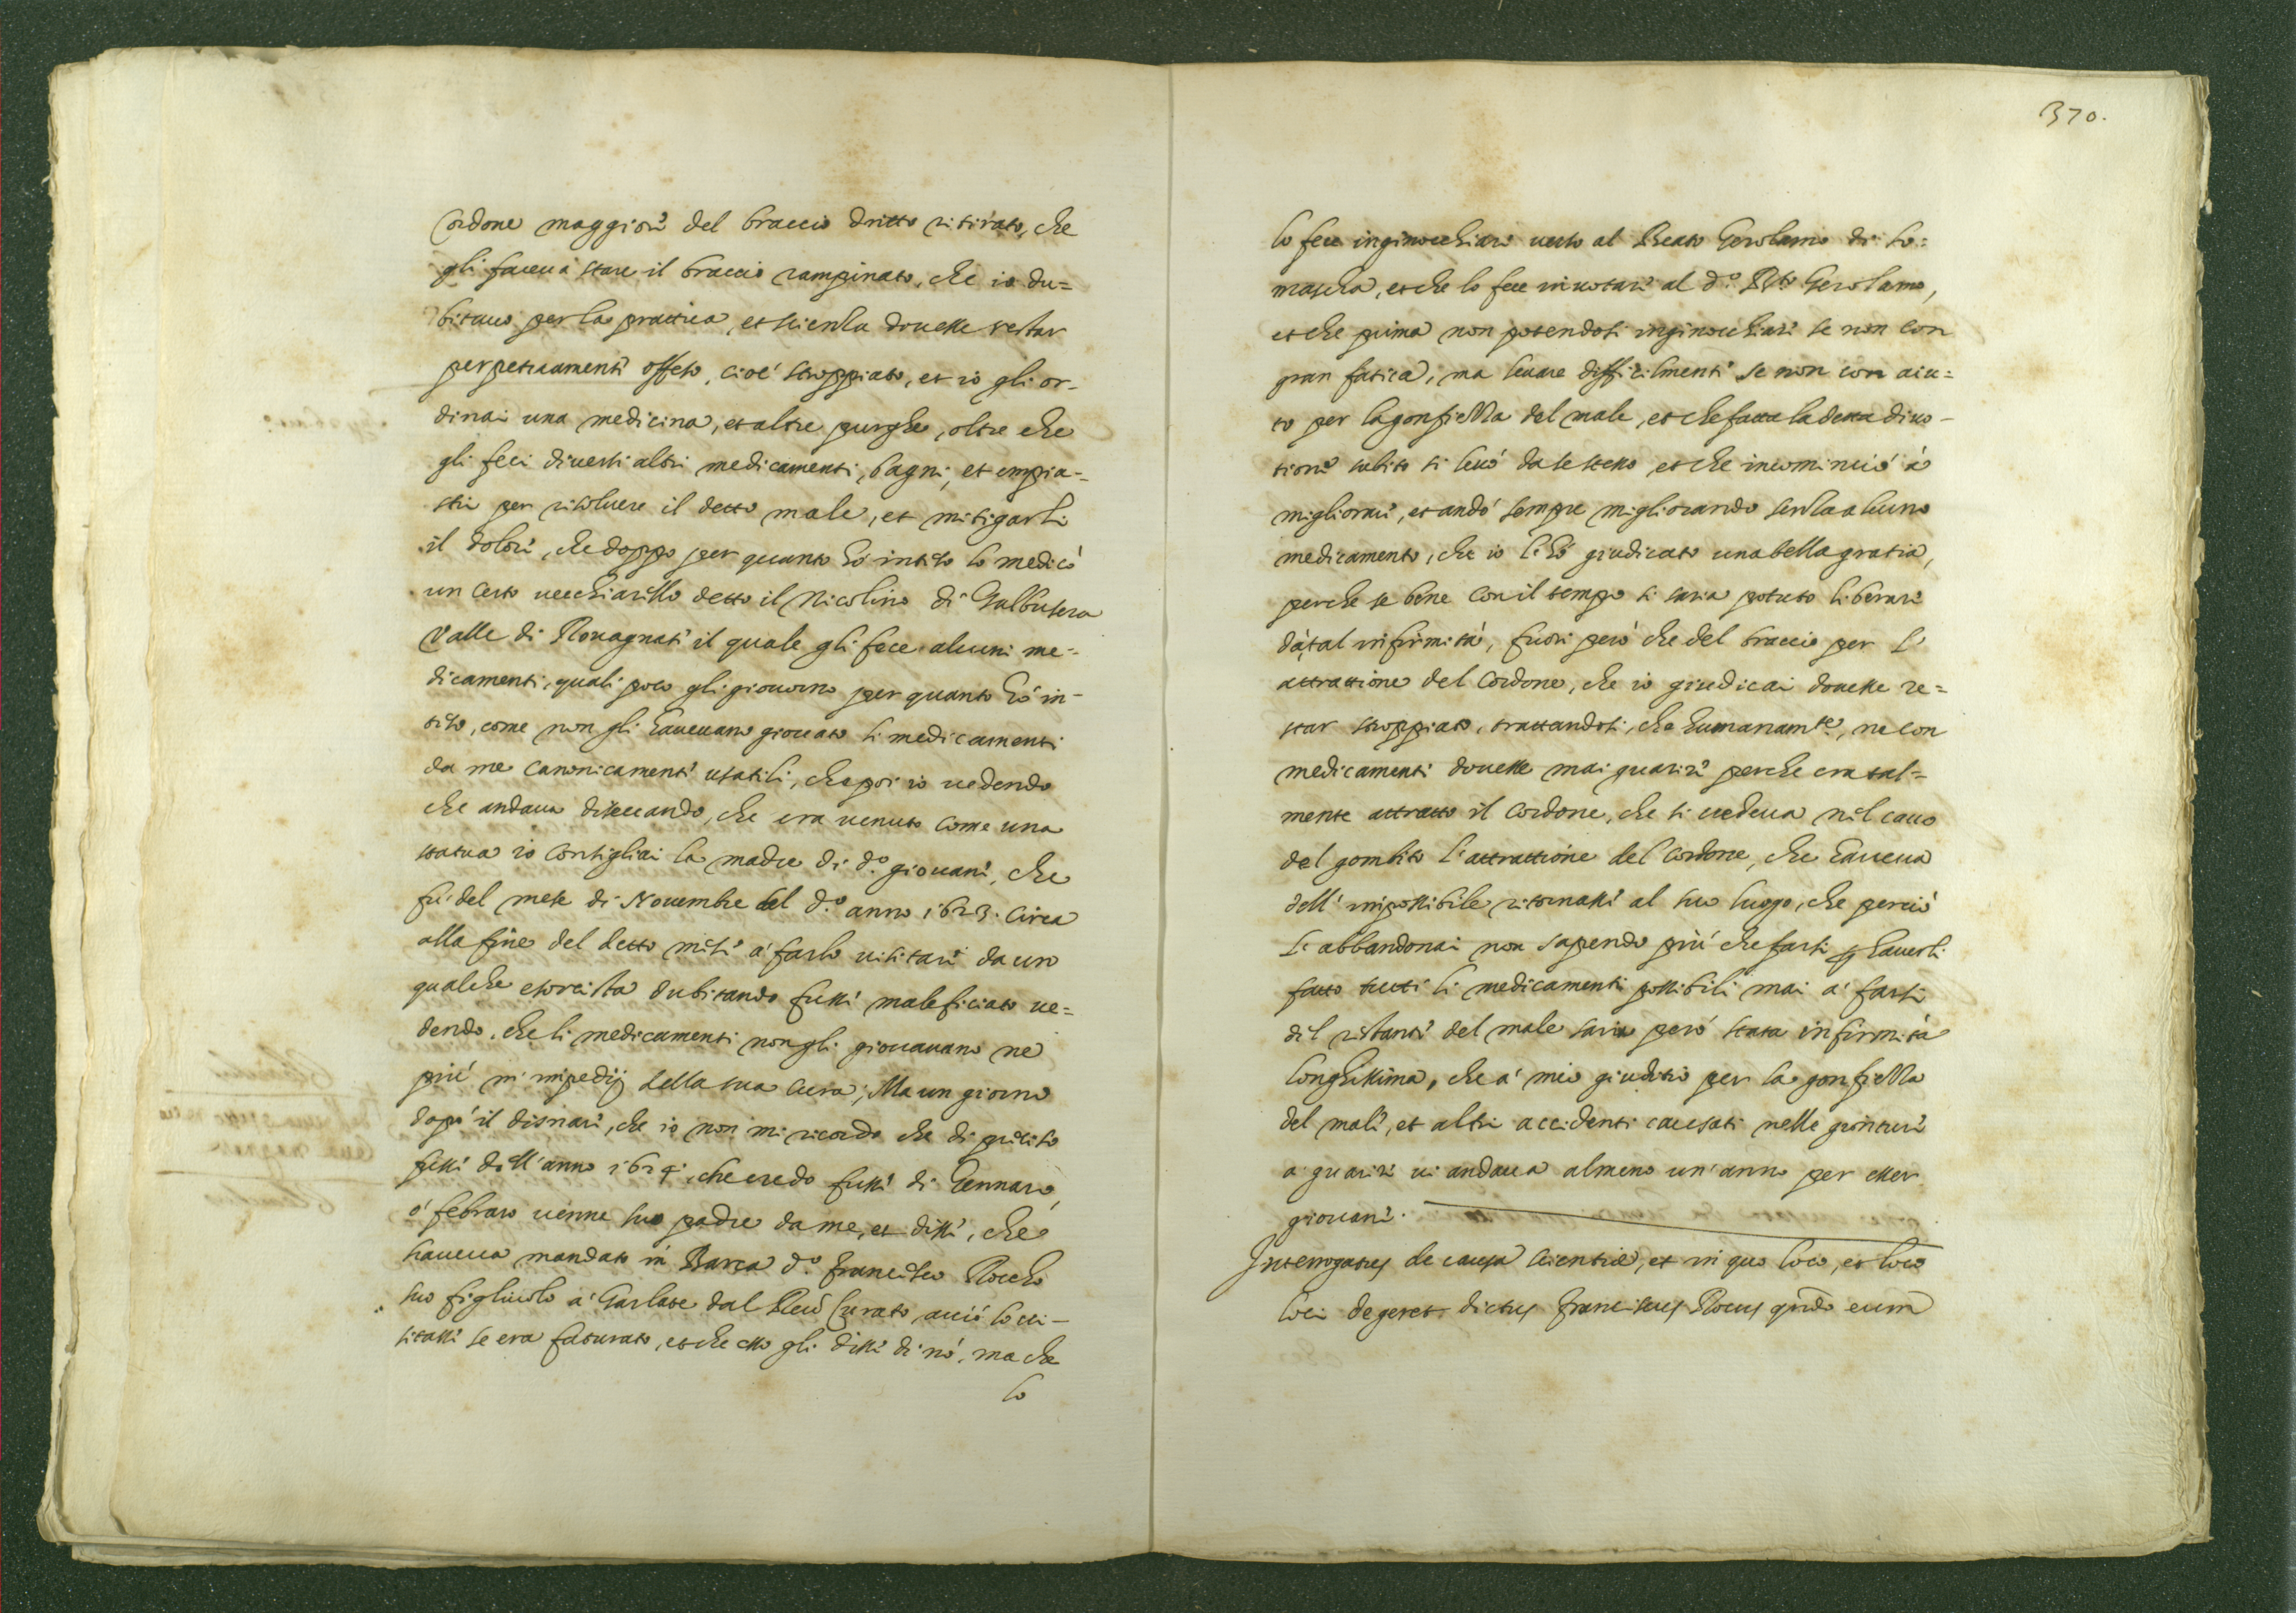 Cordone maggiore del braccio dritto ritirato, che
gli faceua stare il braccio rampinato, che io du=
bitauo per la prattica, et scienza douesse restar
perpetuamente offeso, cioé stroppiato, et io gli or-
dinai una medicina, et altre purghe, oltre che
gli feci diuersi altri medicamenti, bagni, et empia-
stri per risoluere il detto male, et mitigarli
il dolore, che doppo per quanto hó inteso lo medicó
un certo uecchiarello detto il Nicolino di Galbusera
Valle di Rouagnate il quale gli fece alcuni me-
dicamenti, quali poco gli giouorno per quanto hó in-
teso, come non gli haueuano giouato li medicamenti
da me canonicamente usatili, che poi io uedendo
che andaua diseccando, che era uenuto come una
statua io consigliai la madre di d.º giouane, che
fú del mese di Nouembre del d.º anno 1623. circa
alla fine del detto mese á farlo uisitare da un
qualche esorcista dubitando fusse maleficiato ue=
dendo, che li medicamenti non gli giouauano ne
piú m'impedij della sua cura; Ma un giorno
dopó il disnare, che io non mi ricordo che di preciso
fusse dell'anno 1624. che credo fusse di Gennaro,
ó febraro uenne suo padre da me, et disse, che
haueua mandato in Barca d.º Francesco Rocho
suo figliuolo á Garlate dal Reu.º Curato, acció lo ui-
sitasse se era faturato, et che esso gli disse di nó, ma che
lo
370.
lo fece inginocchiare uerso al Beato Gerolamo di So=
mascha, et che lo fece inuotare al d.º B.to Gerolamo,
et che prima non potendosi inginocchiare se non con
gran fatica, ma leuare difficilmente se non con aiu=
to per la gonfiezza del male, et che fatta la detta diuo-
tione subito si leuó da se stesso, et che incominció á
migliorare, et andó sempre migliorando senza alcuno
medicamento, che io l'hó giudicato una bella gratia,
perche se bene con il tempo si saria potuto liberare
dá tal infirmitá, fuori peró che del braccio per l'
attrattione del Cordone, che io giudicai douesse re=
star stroppiato, trattandosi, che humanam.te, ne con
medicamenti douesse mai guarire perche era tal=
mente attratto il Cordone, che si uedeua nel cauo
del gombito l'attrattione del Cordone, che haueua
dell'impossibile ritornasse al suo luogo, che perció
l'abbandonai non sapendo piú che farli p hauerli
fatto tutti li medicamenti possibili mai á farli
del restante del male saria peró stata infirmitá
longhissima, che á mio giuditio per la gonfiezza
del male, et altri accidenti causati nelle gionture
á guarire ui andaua almeno un'anno per esser
giouane.
Interrogatus de causa scientiæ, et in quo loco, et loco
loci degeret dictus Franciscus Rocus qndo eum